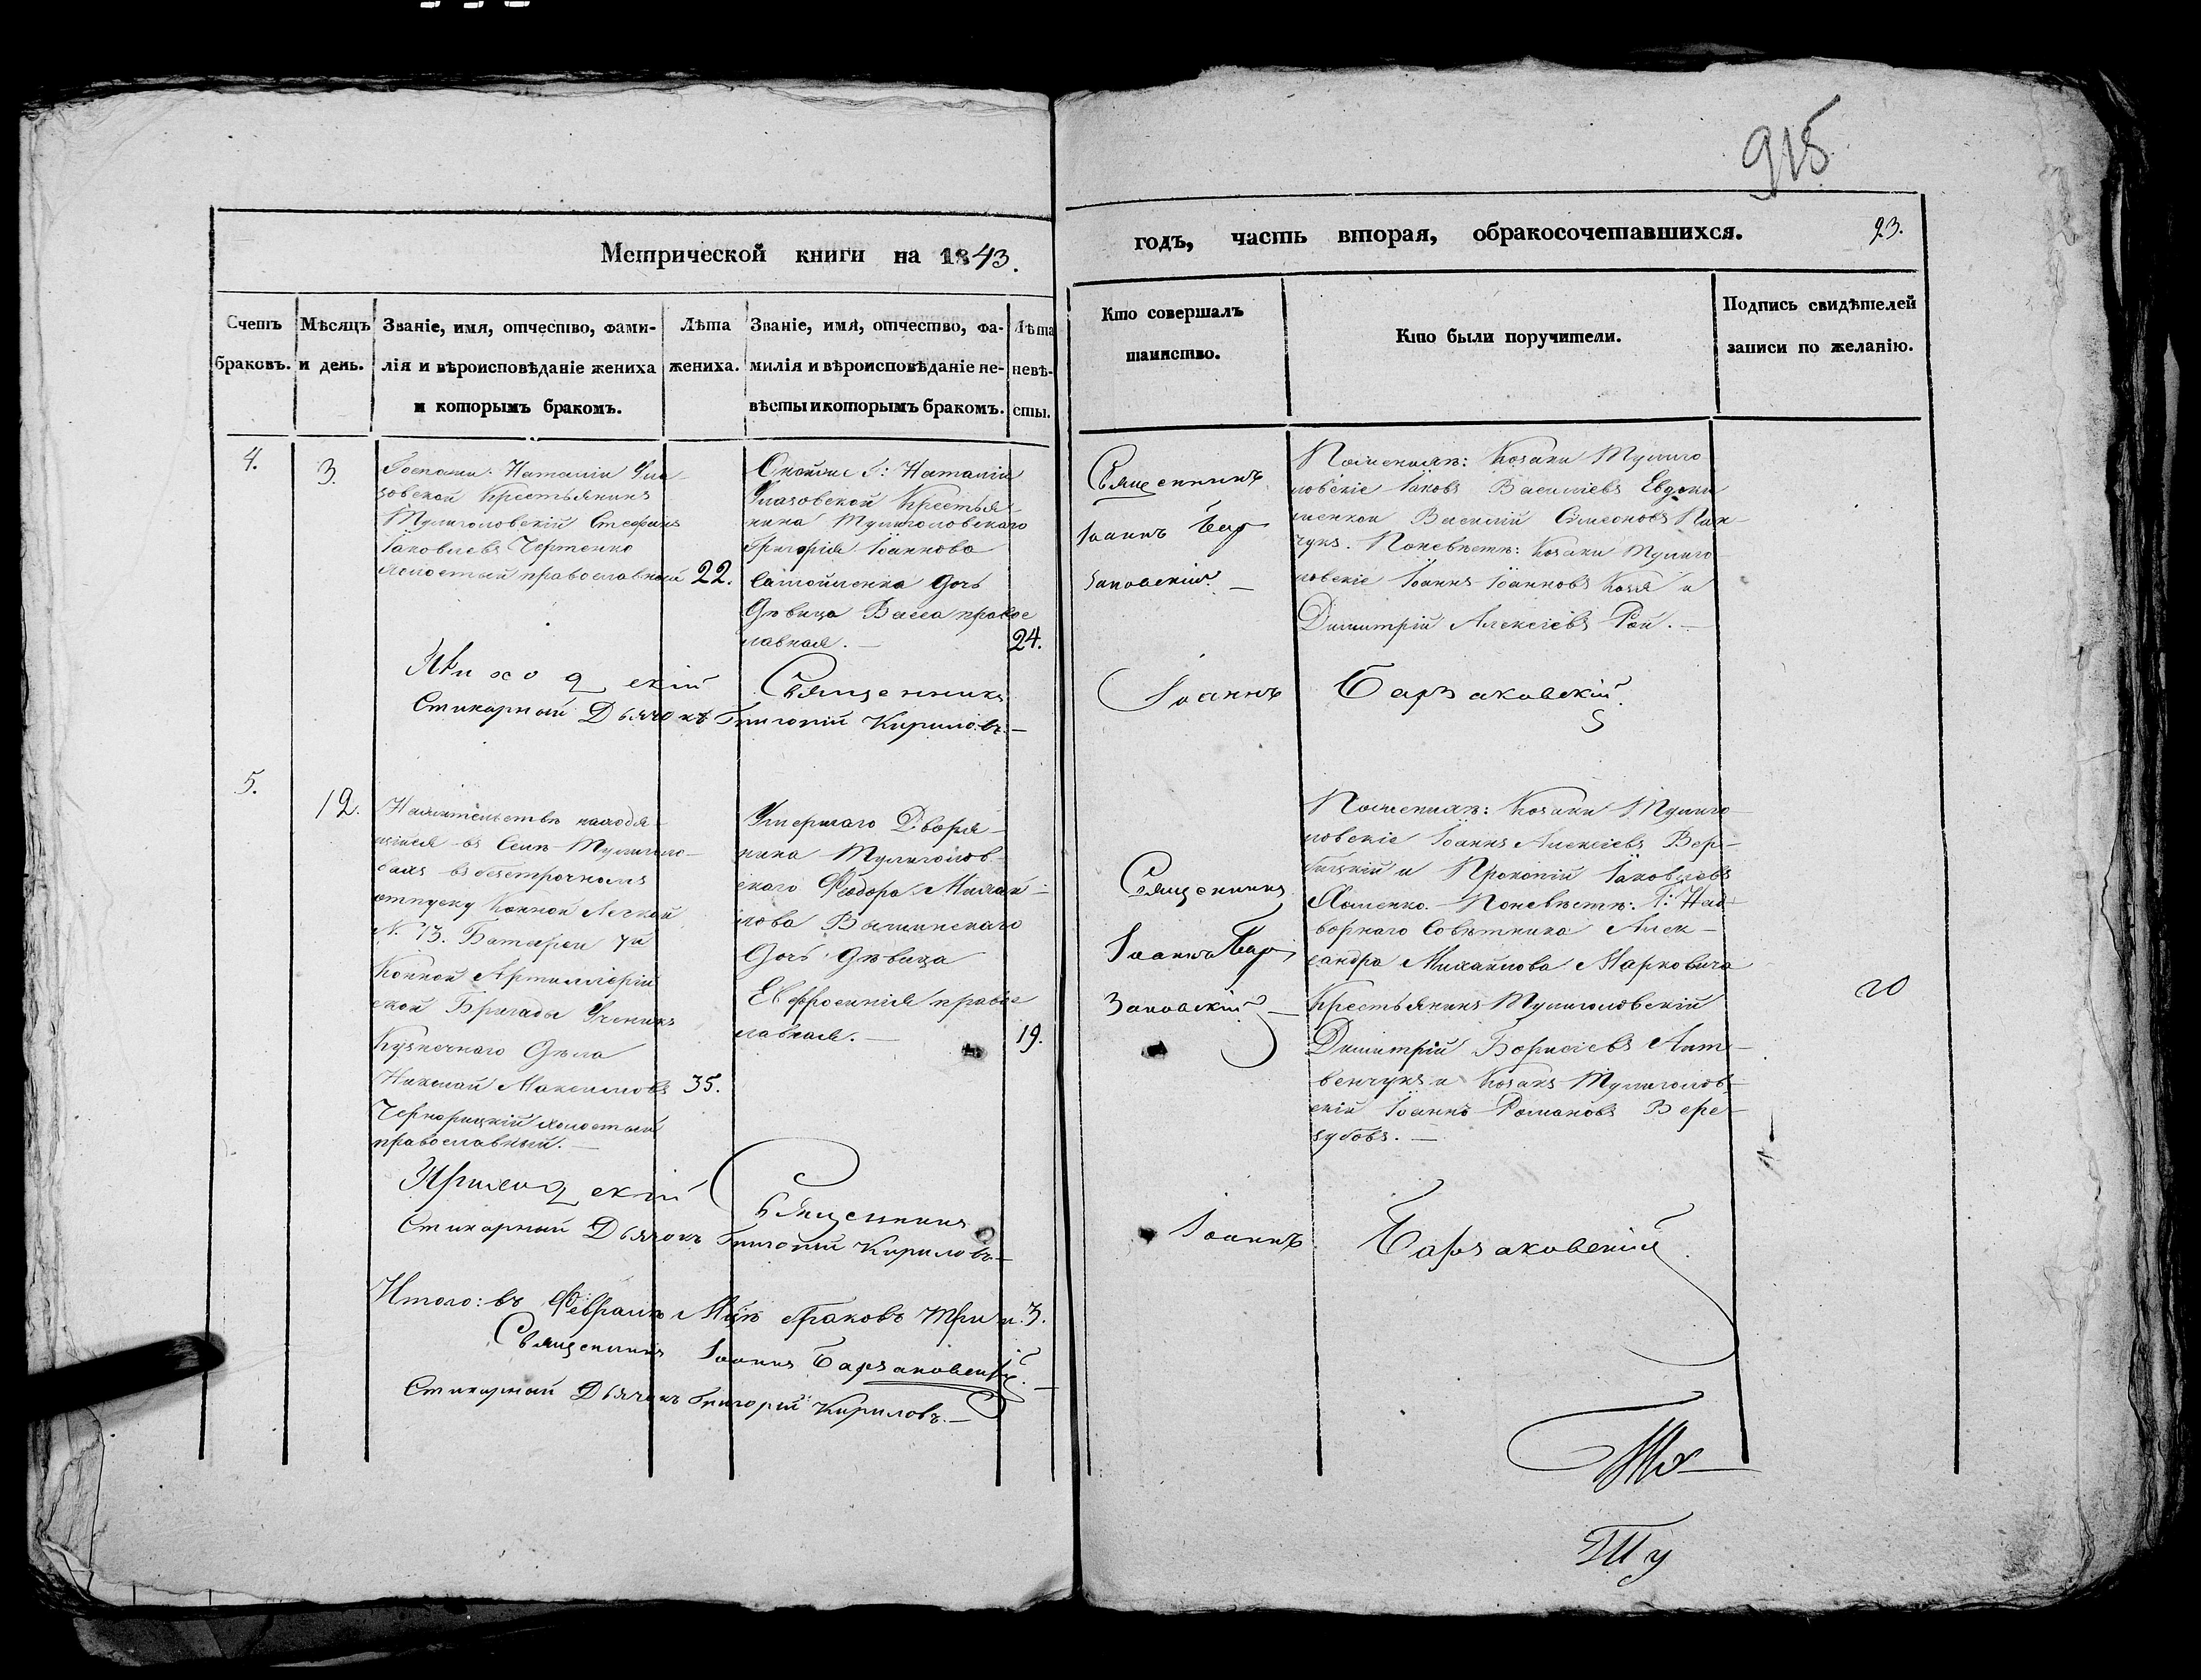 915
Метрической книги на 1843.
годъ, часть вторая, обракосочетавшихся.
23.
Счетъ
браковъ.
Мѣсяцъ
и день.
Званіе, имя, отчество, фами-
лія и вѣроисповѣданіе жениха
и которымъ бракомъ.
Лѣта
жениха.
Званіе, имя, отчество, фа-
милія и вѣроисповѣданіе не-
вѣсты и которымъ бракомъ.
Лѣта
невѣ-
сты.
Кто совершалъ
таинство.
Кто были поручители.
Подпись свидѣтелей
записи по желанію.
4.
3.
Госпожи Наталіи
Крестьянинъ
Тулиголовскій Стефанъ
Іаковлевъ Чертенко
холостый православный
22.
Онойже Г: Наталіи
Крестья-
нина Тулиголовскаго
Григорія Іоаннова
Самойленка дочь
дѣвица Васса правос
лавная. —
24.
Священникъ
Іоаннъ Бар
заковскій. —
По женихѣ: Козаки Тулиго
ловскіе Іаковъ Василіевъ Евдоки
менкои Василій Симеоновъ Пан-
чукъ. По невѣстѣ: Козаки Тулиго
ловскіе Іоаннъ Іоанновъ Козя и
Димитрій Алексіевъ Рой. —
Приходскій Священникъ Іоаннъ Барзаковскій.
Стихарный Дьячокъ Григорій Кириловъ. —
5.
12.
Нажительствѣ находя-
щійся въ Селѣ Тулиголо-
вахъ въ безсрочномъ
отпуску Конной Легкой
№ 13. Батареи 7й
Конной Артиллерій
ской Бригады Ученикъ
Кузнечнаго дѣла
Николай Максимовъ
Черноруцкій холостый
православный. —
35.
Умершаго Дворя-
нина Тулиголов-
скаго Феодора Михай-
лова
Дочь дѣвица
Евфросинія правос
лавная. —
19.
Священникъ
Іоаннъ Бар
заковскій —
По женихѣ: Козаки Тулиго
ловскіе Іоаннъ Алексіевъ Вер-
бицкій и Прокопій Іаковлевъ
Хоменко. — По невѣстѣ: Г: Над
ворнаго Совѣтника Алек-
сандра Михайлова Марковича
Крестьянинъ Тулиголовскій
Димитрій Борисіевъ Лит-
венчукъ и Козакъ Тулиголов-
скій Іоаннъ Романовъ Вере-
зубовъ. —
Приходскій Священникъ Іоаннъ Барзаковскій.
Стихарный Дьячокъ Григорій Кириловъ —
Итого: въ Февралѣ Мцѣ браковъ три 3.
Священникъ Іоаннъ Барзаковскій. —
Стихарный Дьячокъ Григорій Кириловъ. —